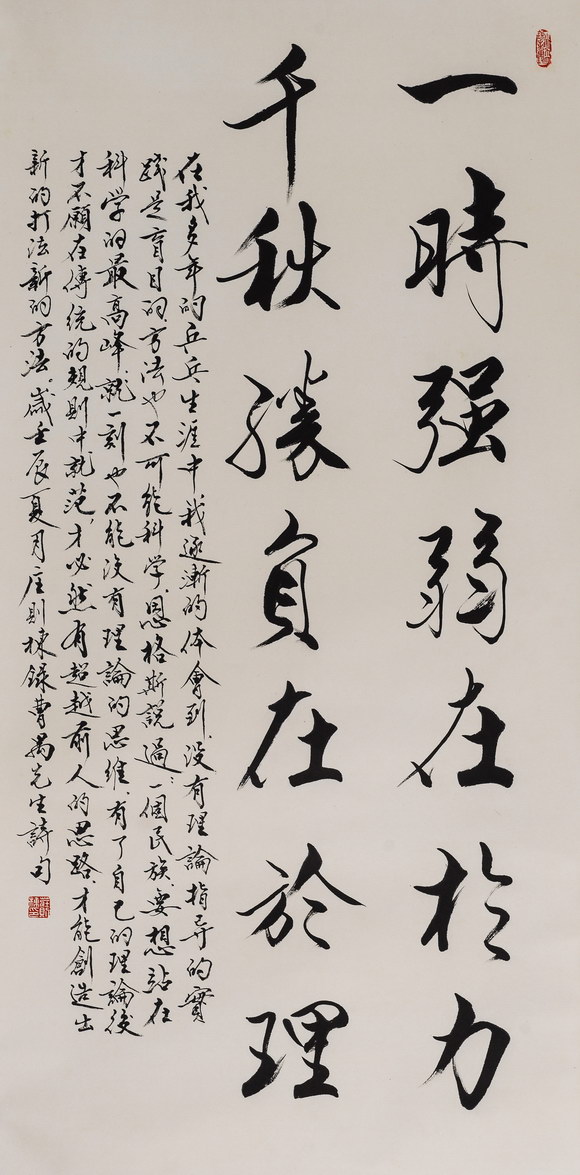 一時强弱在於力
千秋勝負在於理
在我多年的乒乓生涯中我逐漸的体會到没有理論指导的實
践是盲目的方法也不可能科学恩格斯説過一個民族要想站在
科学的最高峰就一刻也不能没有理論的思维有了自己的理論後
才不願在傳统的規則中就范才必然有超越前人的思路才能創造出
新的打法新的方法歲壬辰夏月庄則棟録曹禺先生詩句